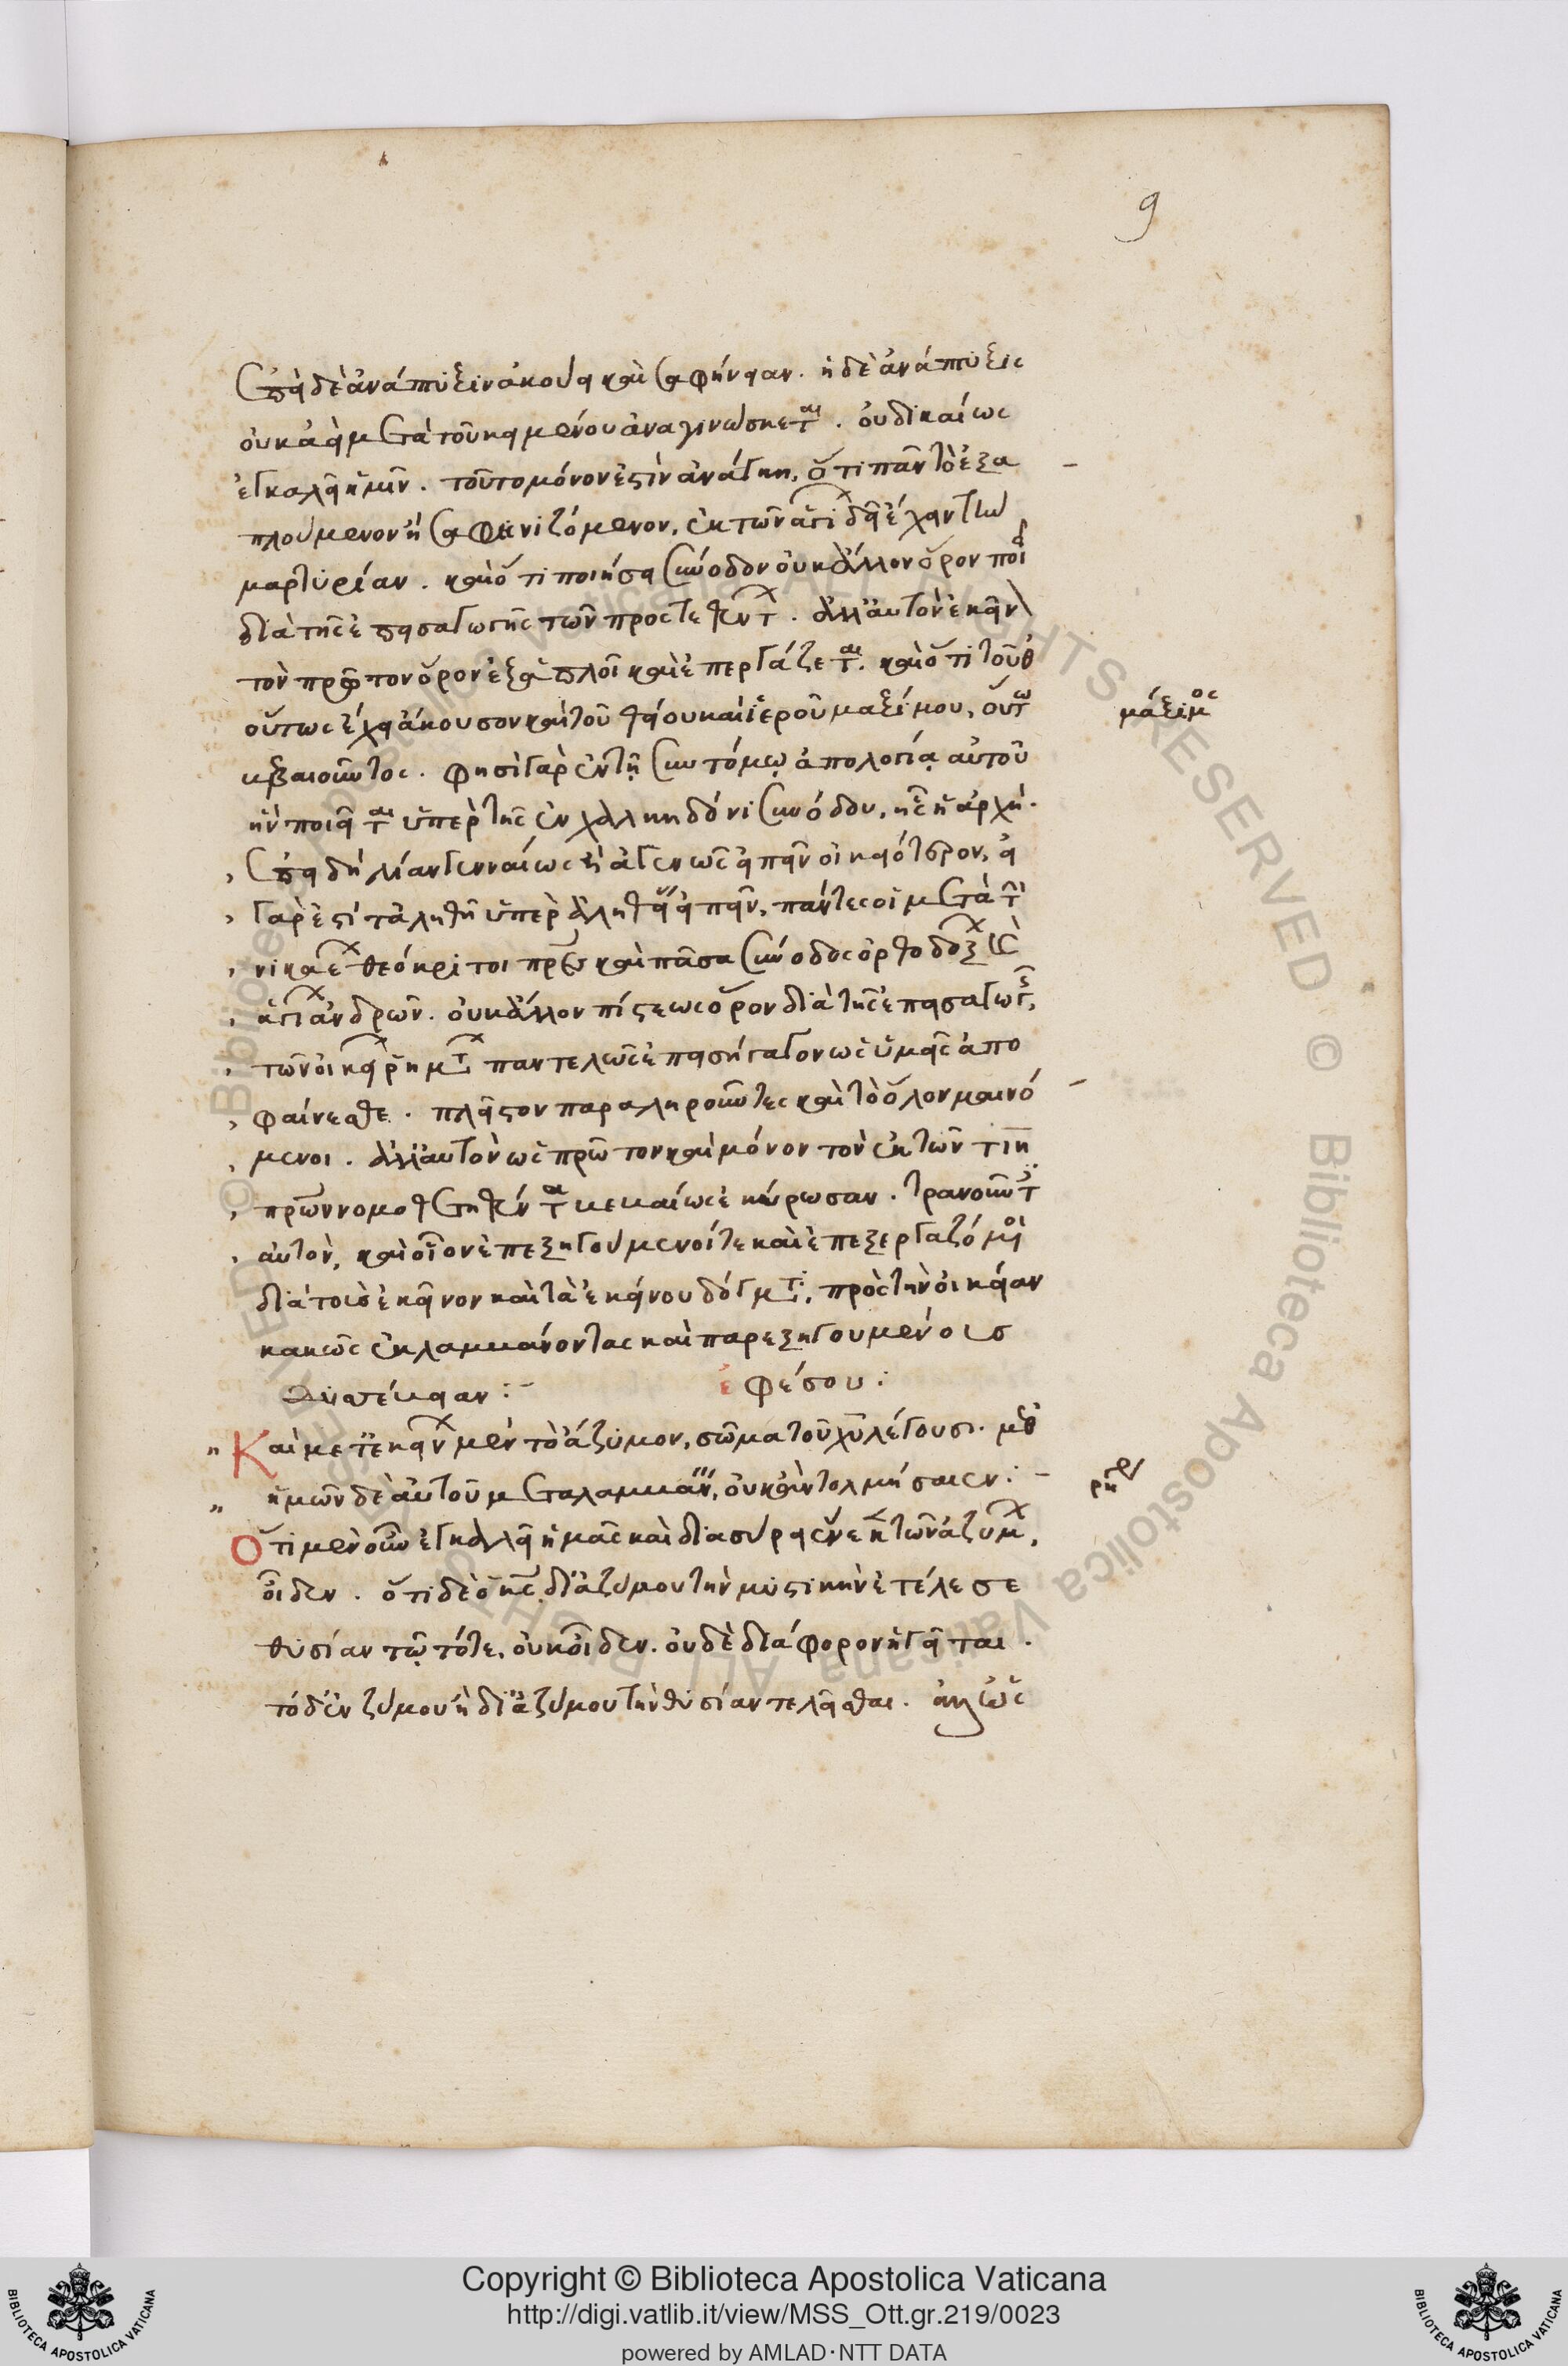 9
ἐπεὶ δὲ ἀνάπτυξιν ἀκούει καὶ σαφήνειαν. ἡ δὲ ἀνάπτυξις
οὐκ ἀεὶ μετὰ τοῦ κειμένου ἀναγινώσκεται. οὐ δικαίως
ἐγκαλεῖ ἡμῖν. τοῦτο μόνον ἐστὶν ἀνάγκη, ὅτι πᾶν τὸ ἐξα
πλούμενον ἢ σαφηνιζόμενον, ἐκ τῶν ἁγίων δεῖ ἔχειν τὴν
μαρτυρίαν. καὶ ὅτι ποιήσει σύνοδον οὐκ ἄλλον ὅρον ποιεῖ
διὰ τῆς ἐπεισαγωγῆς τῶν προστεθέντων. ἀλλ' αὐτὸν ἐκεῖνον
τὸν πρῶτον ὅρον ἐξαπλοῖ καὶ ἐπεργάζεται. καὶ ὅτι τοῦθ'
οὕτως ἔχει ἄκουσον καὶ τοῦ θείου καὶ ἱεροῦ μαξίμου, οὕτω
μάξιμος
βεβαιοῦντος. φησὶ γὰρ ἐν τῇ συντόμῳ ἀπολογίᾳ αὐτοῦ
ἣν ποιεῖται ὑπὲρ τῆς ἐν χαλκηδόνι συνόδου, ἧς ἡ ἀρχή.
ἐπεὶ δὴ λίαν γενναίως ἢ ἀγενῶς εἰπεῖν οἰκειότερον, εἰ
γὰρ ἐστὶ τἀληθῆ ὑπὲρ ἀληθείας εἰπεῖν, πάντες οἱ μετὰ τὴν
νίκαιαν θεόκριτοι πατέρες καὶ πᾶσα σύνοδος ὀρθοδόξων καὶ
ἁγίων ἀνδρῶν. οὐκ ἄλλον πίστεως ὅρον διὰ τῆς ἐπεισαγωγῆς,
τῶν οἰκείων ῥημάτων παντελῶς ἐπεισήγαγον ὡς ὑμεῖς ἀπο
φαίνεσθε. πλεῖστον παραληροῦντες καὶ τὸ ὅλον μαινό
μενοι. ἀλλ' αὐτὸν ὡς πρῶτον καὶ μόνον τὸν ἐκ τῶν τιη
πρων νομοθετηθέντα βεβαίως ἐκύρωσαν. τρανοῦντες
αὐτὸν, καὶ οἷον ἐπεξηγούμενοί τε καὶ ἐπεξεργαζόμενοι
διὰ τοὺς ἐκεῖνον καὶ τὰ ἐκείνου δόγματα, πρὸς τὴν οἰκείαν
κακῶς ἐκλαμβάνοντας καὶ παρεξηγουμένοις
ἐφέσου:
Καὶ μετ' ἐκεῖνον μὲν τὸ ἄζυμον, σῶμα τοῦ χυ λέγουσι. μεθ'
ἡμῶν δὲ αὐτοῦ μεταλαμβάνειν, οὐκ ἂν τολμήσαιεν:
Ὅτι μὲν οὖν ἐγκαλεῖ ἡμᾶς καὶ διασύρει ἕνεκα τῶν ἀζύμων,
οἶδεν. ὅτι δὲ ὁ κς δι' ἀζύμου τὴν μυστικὴν ἐτέλεσε
θυσίαν τῷ τότε, οὐκ οἶδεν. οὐδὲ διάφορον ἡγεῖται.
τὸ δ' ἐν ζύμου ἢ δι' ἀζύμου τὴν θυσίαν τελεῖσθαι. ἁπλῶς
Copyright © Biblioteca Apostolica Vaticana
http://digi.vatlib.it/view/MSS_Ott.gr.219/0023
powered by AMLAD·NTT DATA